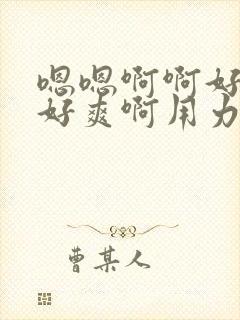 嗯嗯啊啊好
好爽啊用力
曹某人